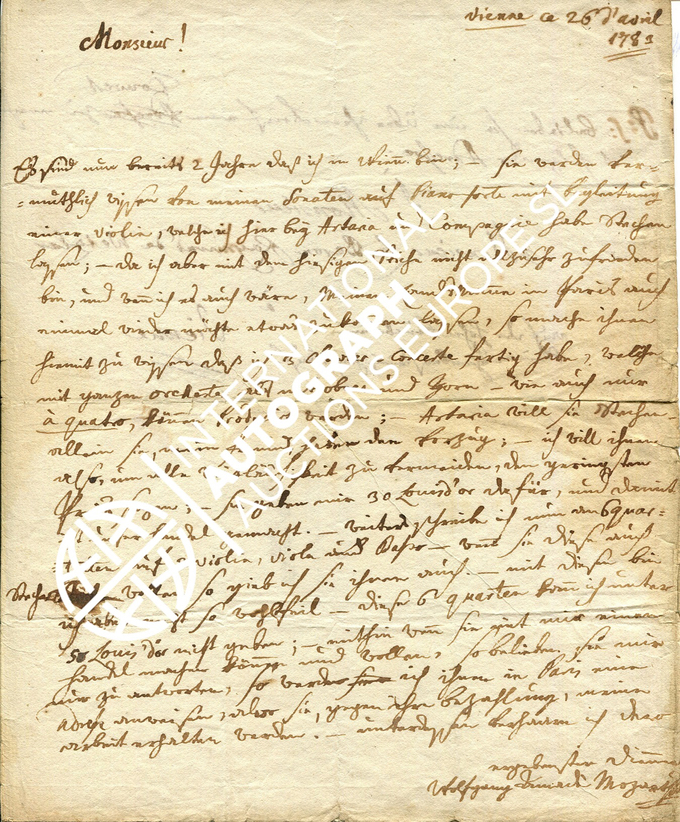 Vienne ce 26 d'avril
1783
Monsieur!
Es sind nun bereits 2 Jahre daß ich in Wienn bin; — sie werden ver=
=muthlich wissen von meinen Sonaten auf Piano forte mit begleitung
einer violin, welche ich hier bey Artaria et Compagnie habe Stechen
lassen; — da ich aber mit dem hiesigen Stiche nicht allzusehr zufrieden
bin, und wenn ich es auch wäre, meinem Landsmanne in Paris auch
einmal wieder möchte etwas zukommen lassen, so mache ihnen
hiemit zu wissen daß ich 3 Clavier=Conzerte fertig habe, welche
mit ganzen orchestre, als mit oboen und Horn — wie auch nur
à quatro, können producirt werden; — Artaria will sie Stechen
allein sie, mein freund, haben den vorzug; — ich will ihnen
also, um alle Weitläufigkeit zu vermeiden, den geringsten
Preis sagen; — sie geben mir 30 Louis d'or dafür, und damit
ist unser handel gemacht. — weiters schreibe ich nun an 6 quar=
tetten auf 2 violin, viola und Basso — wenn sie diese auch
Stechen wollen, so gieb ich sie ihnen auch. — mit diesen bin
ich aber nicht so wohlfeil — diese 6 quartetten kann ich unter
50 Louis d'or nicht geben; — mithin wenn sie mit mir einen
handel machen können und wollen, so belieben sie mir
nur zu antworten, so werde ich ihnen in Paris eine
adresse anweisen, alwo sie, gegen ihre bezahlung, meine
arbeit erhalten werden. — unterdessen verharre ich dero
ergebenster diener
Wolfgang Amadè Mozart
INTERNATIONAL
AUTOGRAPH
AUCTIONS EUROPE SL